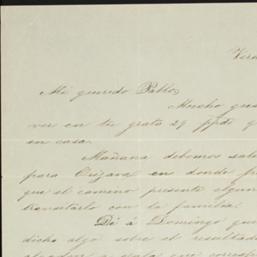 Vera
Mi querido Pablo,
Mucho gus
ver en tu grata 29 ppdo q
en casa.
Mañana debemos sal
para Orizava en donde p
que el camino presente algun
transitarlo con la familia.
Dá á Domingo que
dicho algo sobre el resultado